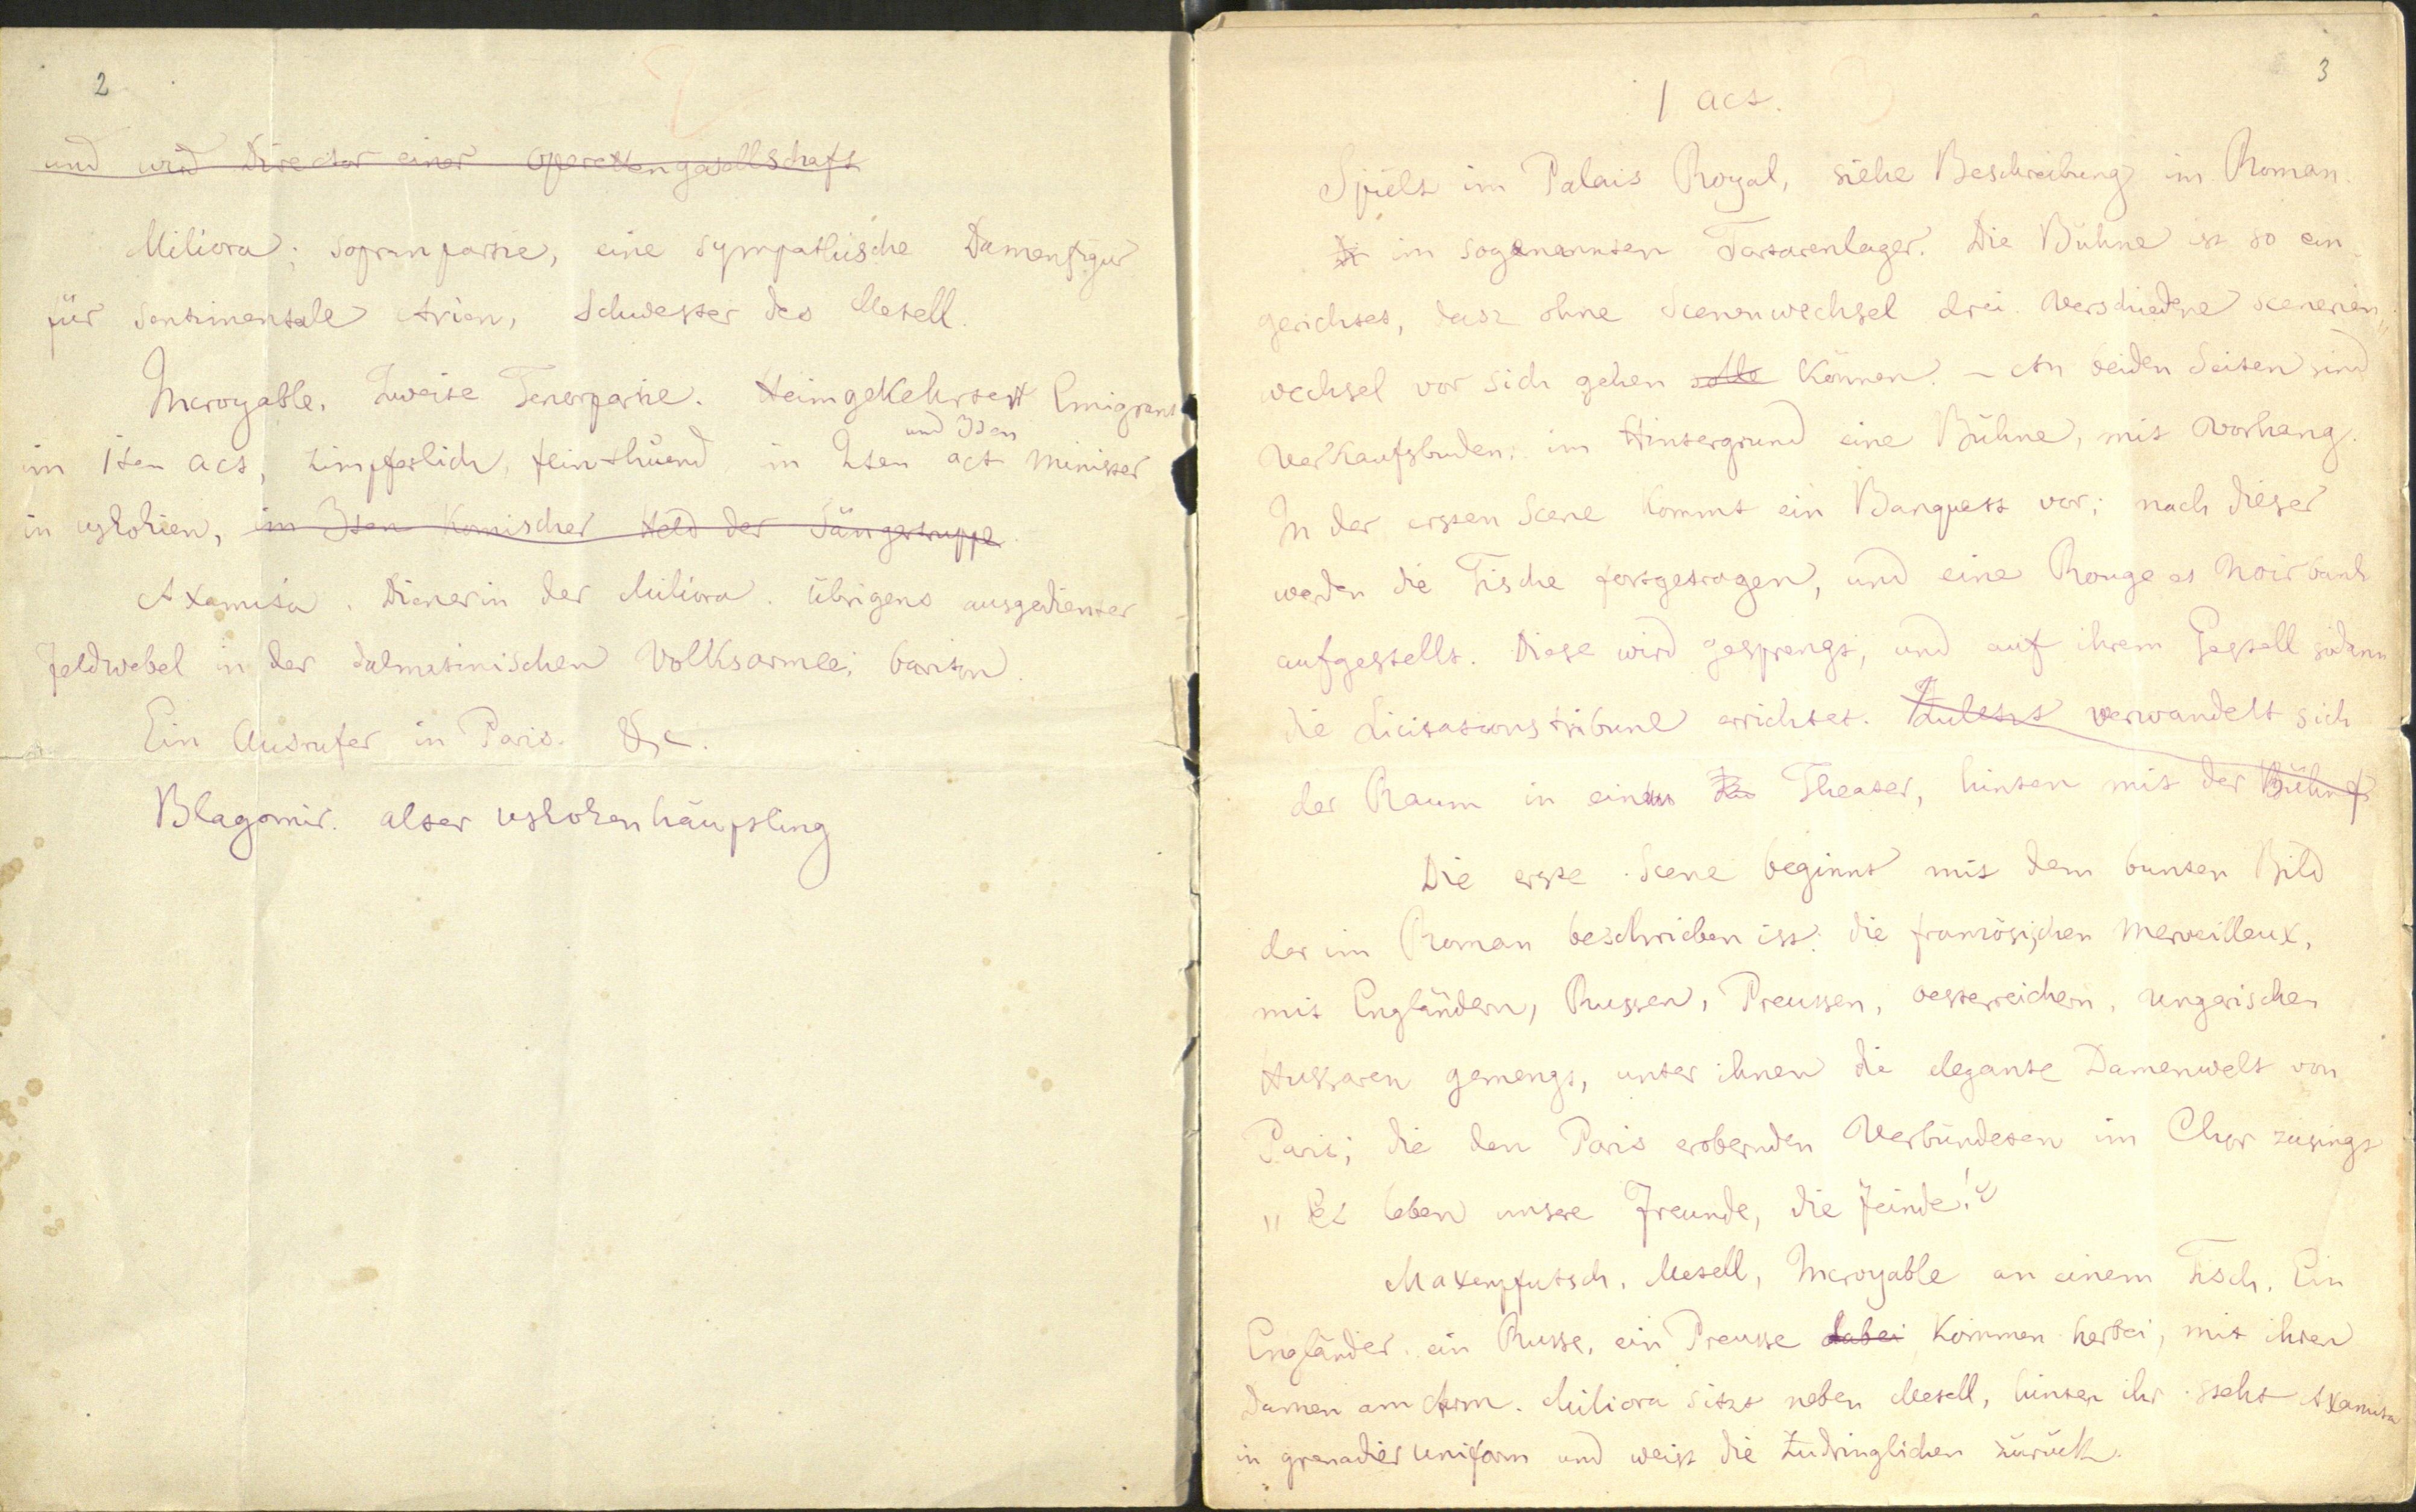 2
und wird Director einer Operettengesellschaft
Miliora; Sopranpartie, eine sympathische Damenfigur
für sentimentale Arien, Schwester des Metell.
Incroyable. Zweite Tenorpartie. Heimgekehrter Emigrant
und 3ten
im 1ten act, zimpferlich, feinthuend in 2ten act Minister
in Uskokien, im 3ten komischer Held der Sängertruppe.
Axamita. Dienerin der Miliora. Übrigens ausgedienter
Feldwebel in der dalmatinischen Volksarmee; bariton.
Ein Ausrufer in Paris. &c.
Blagomir. alter Uskokenhäuptling
3
1 act.
Spielt im Palais Royal, siehe Beschreibung im Roman.
im sogenannten Tartarenlager. Die Bühne ist so ein
gerichtet, dasz ohne Scenenwechsel drei verschiedene scenerien
wechsel vor sich gehen solle können. – An beiden Seiten sind
Verkaufsbuden; im Hintergrund eine Bühne, mit Vorhang.
In der ersten Scene kommt ein Banquett vor; nach dieser
werden die Tische fortgetragen, und eine Rouge et Noir bank
aufgestellt. Diese wird gesprengt, und auf ihrem Gestell sodann
die Licitationstribune errichtet. Zuletzt verwandelt sich
der Raum in ein Theater, hinten mit der Bühne
Die erste Scene beginnt mit dem bunten Bild
der im Roman beschrieben ist: die französischen Merveilleux,
mit Engländern, Russen, Preussen, oesterreichern, ungarischen
Hussaren gemengt, unter ihnen die elegante Damenwelt von
Paris; die den Paris erobernden Verbündeten im Chor zusingt
"Es leben unsere Freunde, die Feinde!"
Maxenpfutsch, Metell, Incroyable an einem Tisch. Ein
Engländer, ein Russe, ein Preusse dabei kommen herbei, mit ihren
Damen am Arm. Miliora sitzt neben Metell, hinter ihr steht Axamita
in grenadier uniform und weist die Zudringlichen zurück.